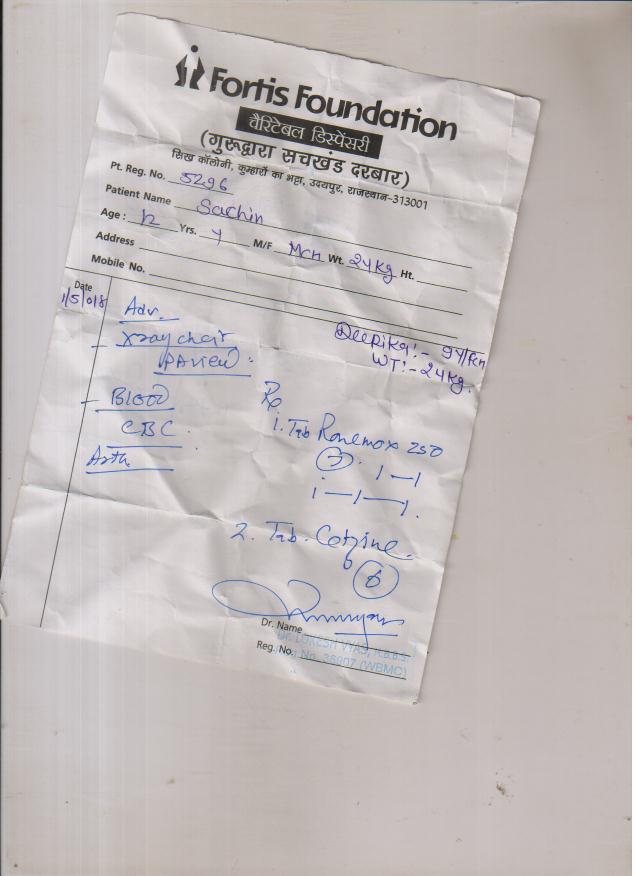 Fortis Foundation
चैरिटेबल डिस्पेंसरी
(गुरूद्वारा सचखंड दरबार)
सिख कॉलोनी, कुम्हारों का भट्टा, उदयपुर, राजस्थान-313001
Pt. Reg. No. 5296
Patient Name Sachin
Age: 12 Yrs. Y M/F Mcn Wt. 24Kg Ht.
Address
Mobile No.
Date
1/5/018
Deepika:- 9Y/Fcn
WT:- 24Kg.
Adv.
- Xray chest
PA view
- Blood
CBC.
Rx
1. Tab 250
1-1
1-1-1.
2. Tab. Cetzine
6
Dr. Name
Dr. LOKESH VYAS, M.B.B.S.
Reg. No.
Reg No. 36907 (WBMC)